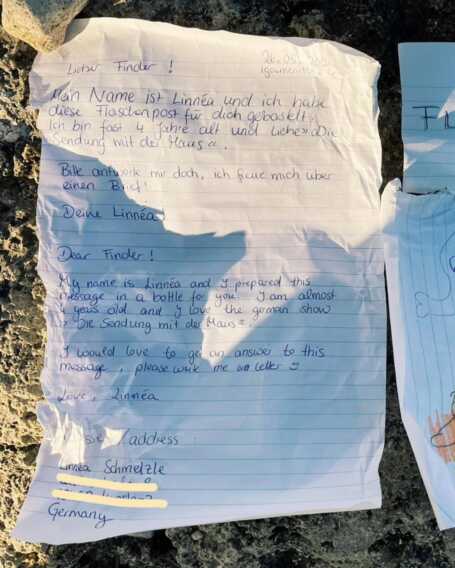 Lieber Finder !
Mein Name ist Linnéa und ich habe
diese Flaschenpost für dich gebastelt.
Ich bin fast 4 Jahre alt und liebe »Die
Sendung mit der Maus«.
Bitte antworte mir doch, ich freue mich über
einen Brief!
Deine Linnéa!
Dear Finder !
My name is Linnéa and I prepared this
message in a bottle for you. I am almost
4 years old and I love the german show
» Die Sendung mit der Maus «.
I would love to get an answer to this
message, please write me a letter
Love, Linnéa
/address :
Linnéa Schmelzle
Germany